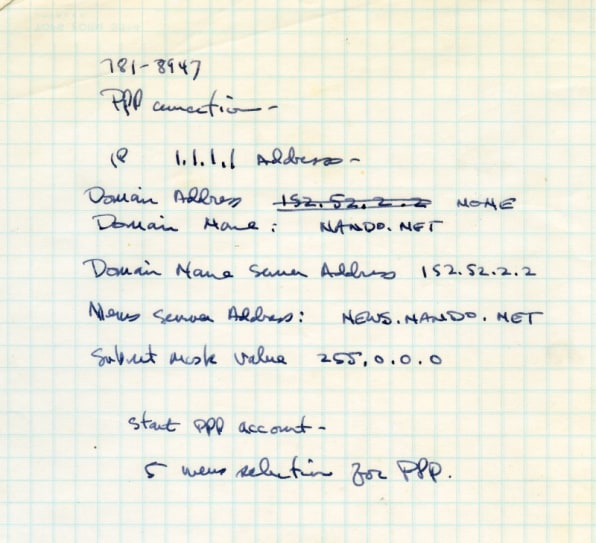 781-8947
PPP connection -
IP 1.1.1.1 Address -
Domain Address 152.52.2.2 NONE
Domain Name: NANDO.NET
Domain Name Server Address 152.52.2.2
News Server Address: NEWS.NANDO.NET
Subnet mask value 255.0.0.0
start PPP account -
5 menu selection for PPP.